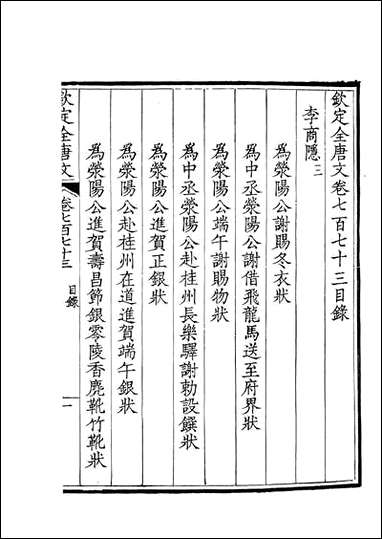 欽定全唐文卷七百七十三目錄
李商隱三
為滎陽公謝賜冬衣狀
為中丞滎陽公謝借飛龍馬送至府界狀
為滎陽公端午謝賜物狀
為中丞滎陽公赴桂州長樂驛謝勅設饌狀
為滎陽公進賀正銀狀
為滎陽公赴桂州在道進賀端午銀狀
為滎陽公進賀壽昌節銀零陵香麂靴竹靴狀
欽定全唐文 卷七百七十三 目錄 一